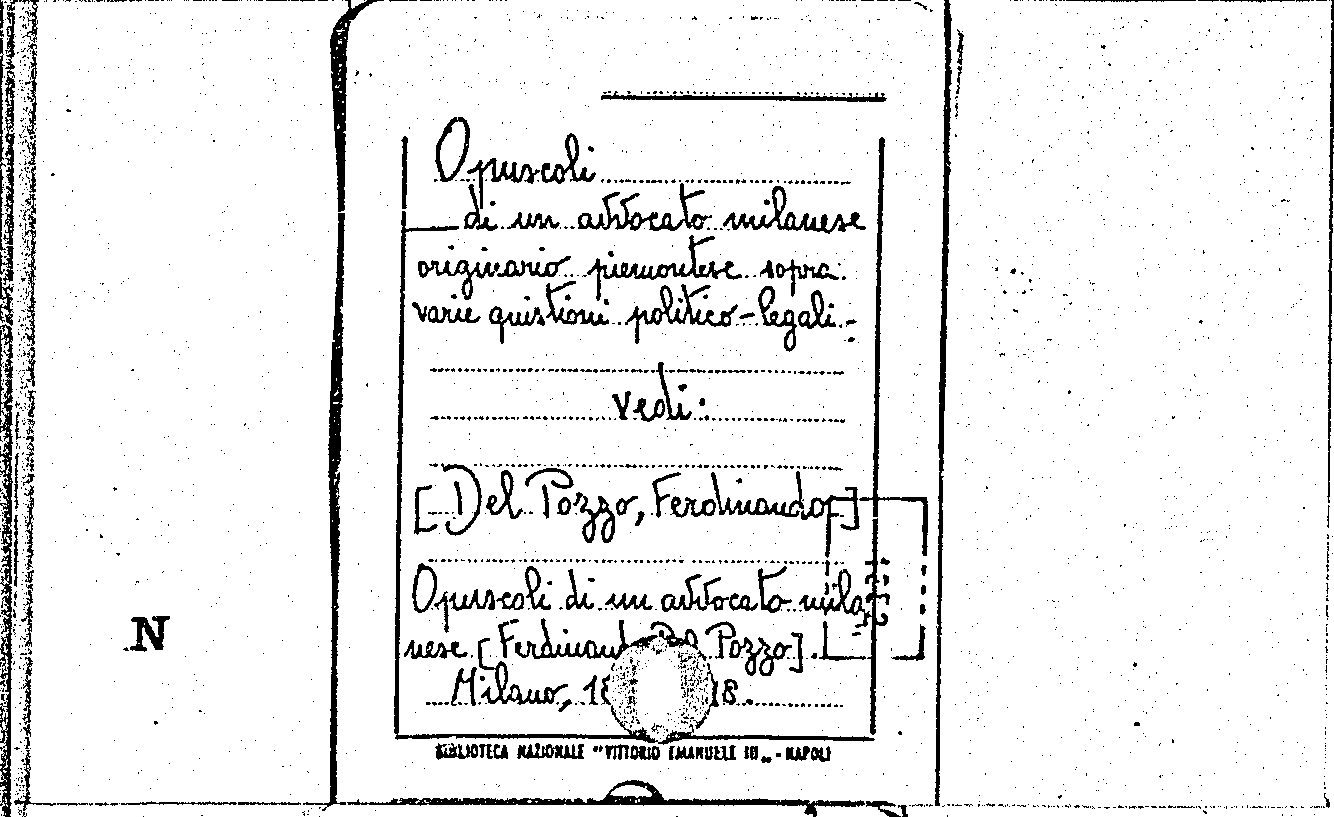 Opuscoli
di un avvocato milanese
originario piemontese sopra
varie quistioni politico-legali.-
vedi:
[Del Pozzo, Ferdinando]
Opuscoli di un avvocato mila
nese [Ferdinando Del Pozzo].
Milano, 18
18.
BIBLIOTECA NAZIONALE "VITTORIO EMANUELE III„ - NAPOLI
N